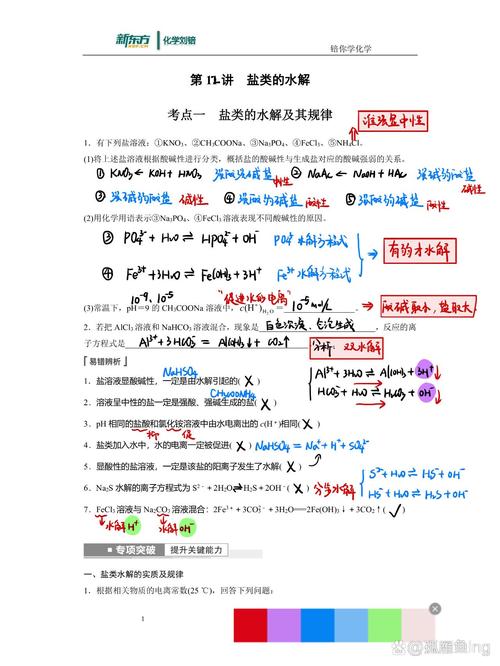 新东方 XDF.CN 化学刘锫
锫你学化学
第12讲 盐类的水解
考点一 盐类的水解及其规律
谁强显中性
1．有下列盐溶液：①KNO₃、②CH₃COONa、③Na₃PO₄、④FeCl₃、⑤NH₄Cl。
(1)将上述盐溶液根据酸碱性进行分类，概括盐的酸碱性与生成盐对应的酸碱强弱的关系。
① KNO₃ ← KOH + HNO₃ 强酸强碱盐 中性 ② NaAc ← NaOH + HAc 强碱弱酸盐 碱性
③ 强碱弱酸盐 碱性 ④ 强酸弱碱盐 酸性 ⑤ 强酸弱碱盐 酸性
(2)用化学用语表示③Na₃PO₄、④FeCl₃溶液表现不同酸碱性的原因。
③ PO₄³⁻ + H₂O ⇌ HPO₄²⁻ + OH⁻ PO₄³⁻水解方程式
有弱才水解
④ Fe³⁺ + 3H₂O ⇌ Fe(OH)₃ + 3H⁺ Fe³⁺水解方程式
10⁻⁹ 10⁻⁵ "促进水的电离"
(3)常温下，pH＝9的CH₃COONa溶液中，c(H⁺)H₂O＝ 10⁻⁵ mol/L 。
酸碱取小，盐取大
2．若把AlCl₃溶液和NaHCO₃溶液混合，现象是 白色沉淀、气泡生成 ，反应的离
子方程式是 Al³⁺ + 3HCO₃⁻ = Al(OH)₃↓ + CO₂↑
分析：双水解
易错辨析
Al³⁺ + 3H₂O ⇌ Al(OH)₃ + 3H⁺↓
HCO₃⁻ + H₂O ⇌ H₂CO₃ + OH⁻↓
NaHSO₄
1．盐溶液显酸碱性，一定是由水解引起的( X )
CH₃COONH₄
2．溶液呈中性的盐一定是强酸、强碱生成的盐( X )
3．pH相同的盐酸和氯化铵溶液中由水电离出的c(H⁺)相同( X )
抑 促
4．盐类加入水中，水的电离一定被促进( X ) NaHSO₄ = Na⁺ + H⁺ + SO₄²⁻
5．显酸性的盐溶液，一定是该盐的阳离子发生了水解( X )
6．Na₂S水解的离子方程式为S²⁻＋2H₂O⇌H₂S＋2OH⁻( X ) 分步水解
S²⁻ + H₂O ⇌ HS⁻ + OH⁻
HS⁻ + H₂O ⇌ H₂S + OH⁻
7．FeCl₃溶液与Na₂CO₃溶液混合：2Fe³⁺＋3CO₃²⁻＋3H₂O═2Fe(OH)₃↓＋3CO₂↑( √ )
水解H⁺ 水解OH⁻
专项突破 提升关键能力
一、盐类水解的实质及规律
1．根据相关物质的电离常数(25 ℃)，回答下列问题：
1